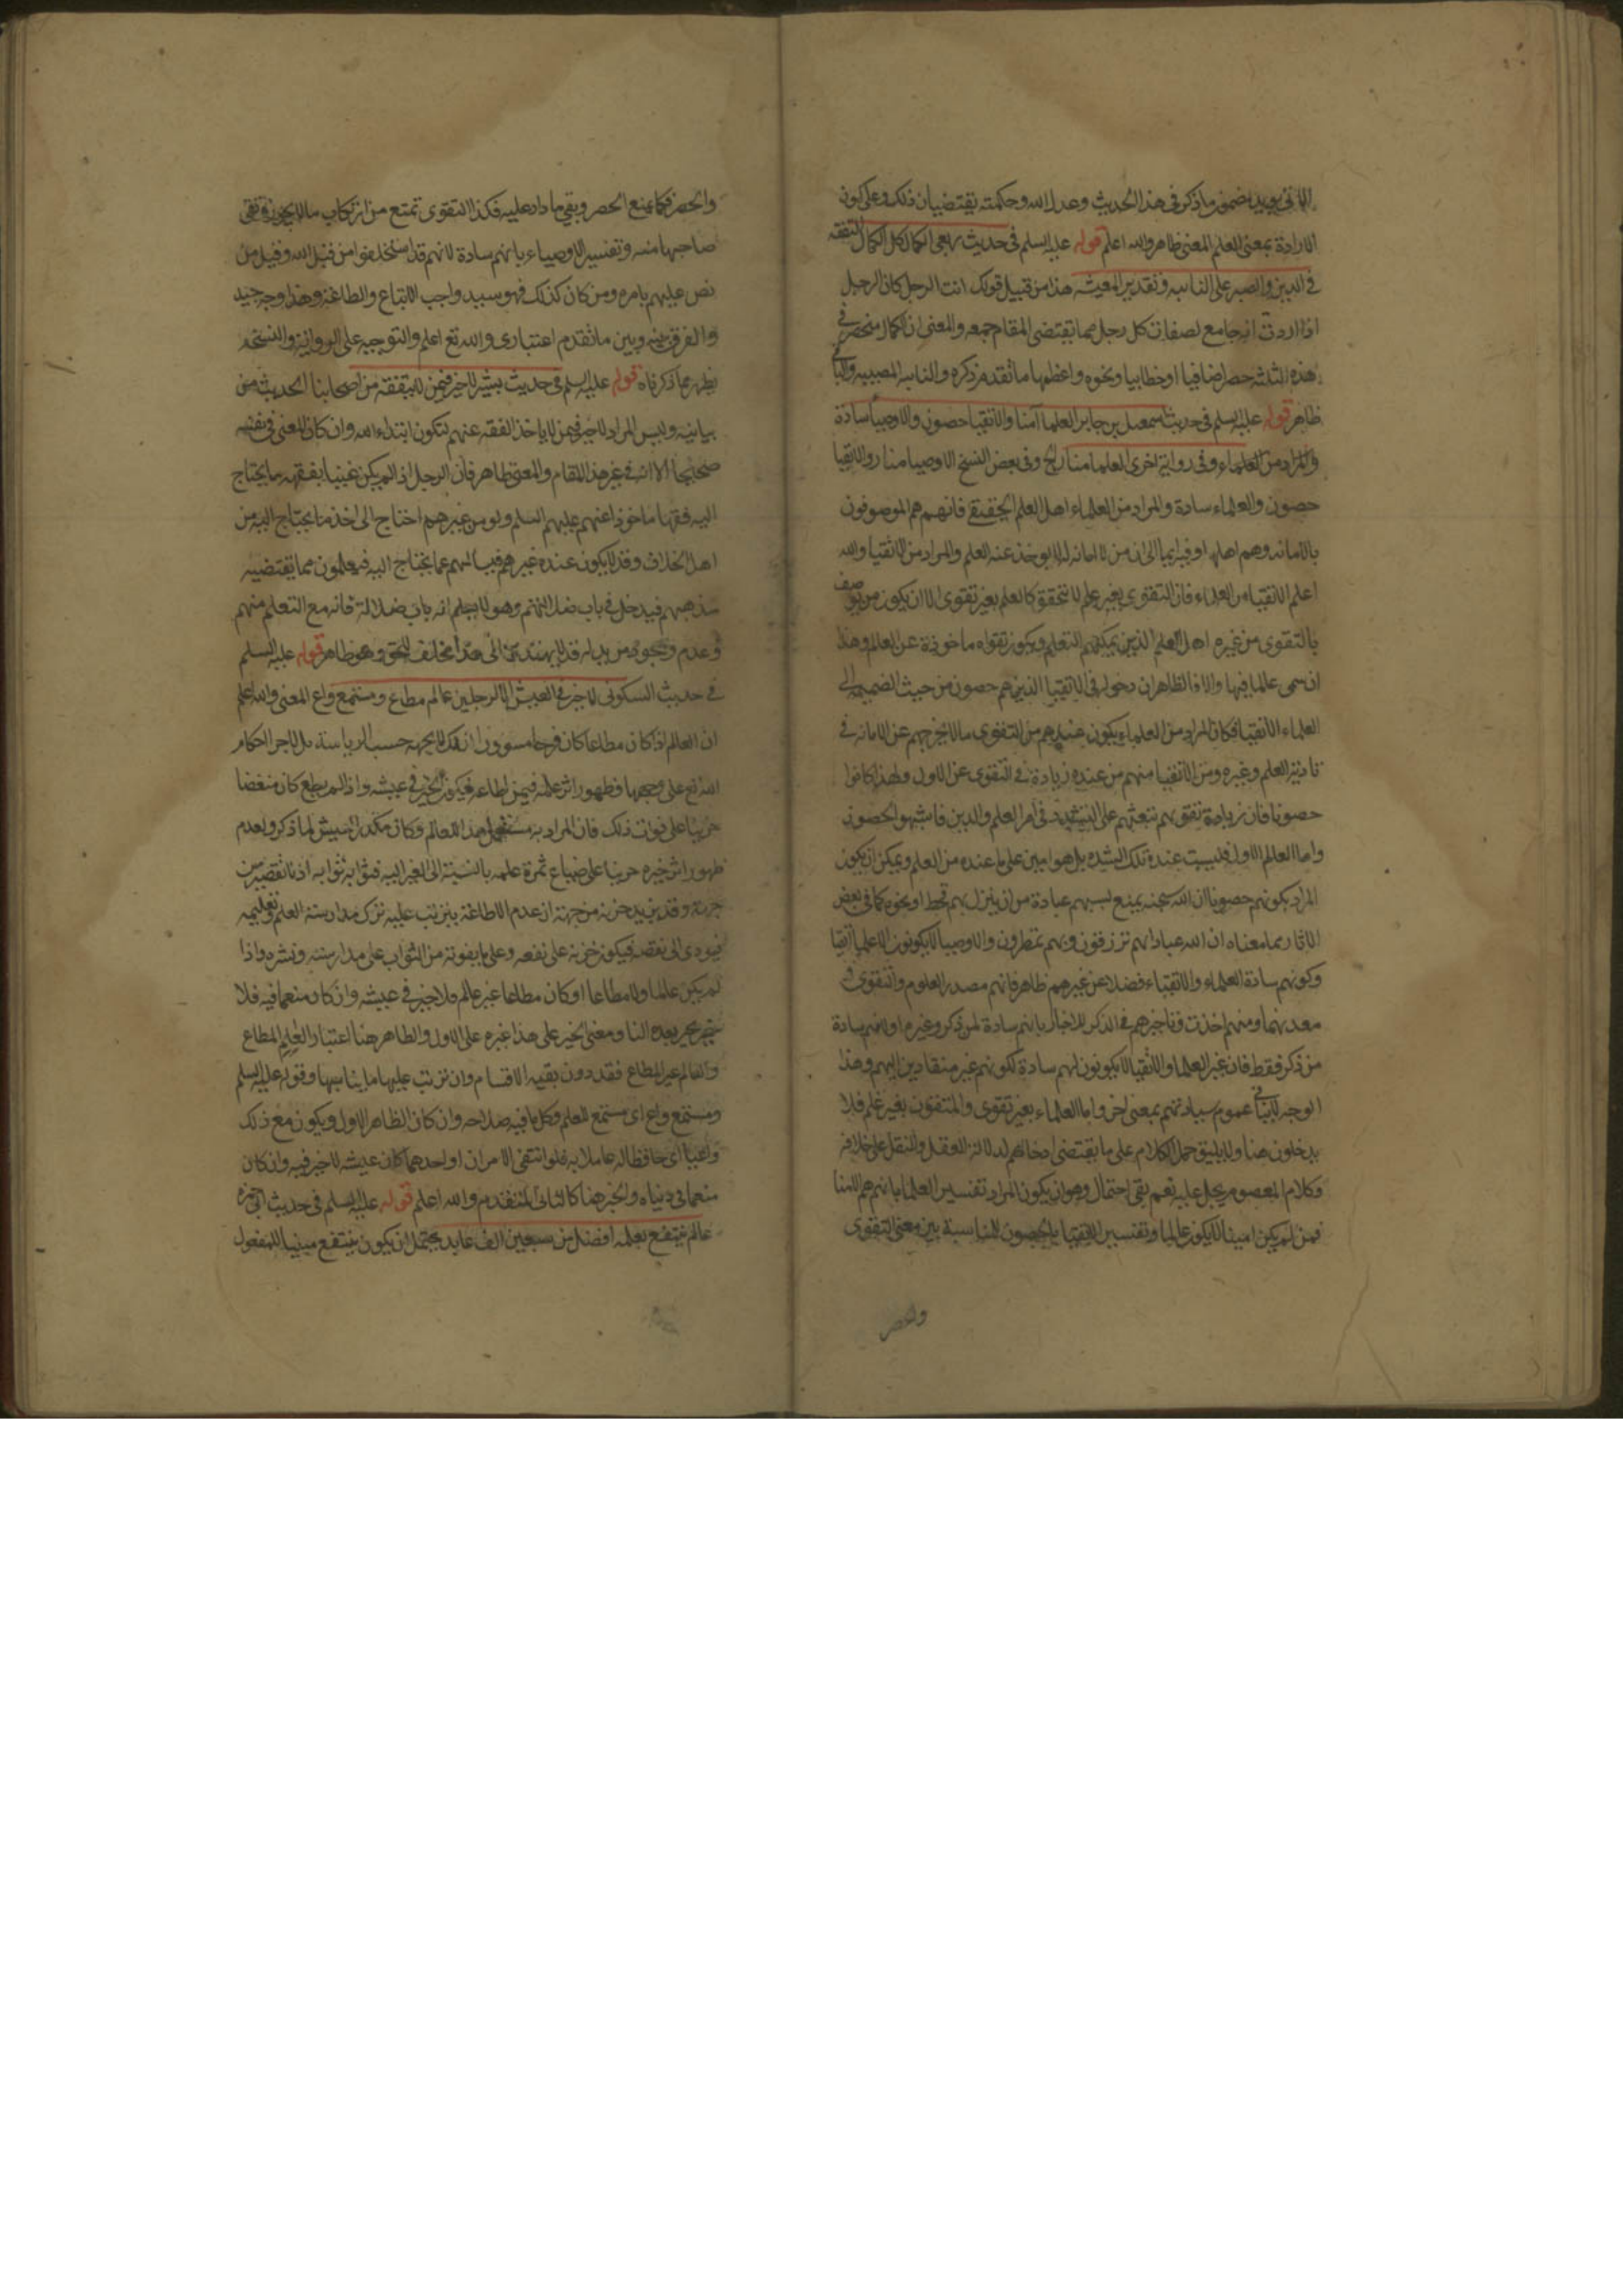 الثاني يويد مضمون ما ذكر في هذا الحديث وعدل الله وحكمته يقتضيان ذلك وعلى كون
الارادة بمعنى العلم المعنى ظاهر والله اعلم قوله عليه السلم في حديث ربعى الكمال كل الكمال التفقه
في الدين والصبر على النائبه وتقدير المعيشه هذا من قبيل قولك انت الرجل كل الرجل
اذا اردت انه جامع لصفات كل رجل مما يقتضى المقام جمعه والمعنى ان الكمال منحصر في
هذه الثلثه حصرا اضافيا او خطابيا ونحوه واعظمها ما تقدم ذكره والنائبه المصيبه والباقي
ظاهر قوله عليه السلم في حديث اسمعيل بن جابر العلما امنا والاتقيا حصون والاوصيا سادة
والمراد من العلماء وفي رواية اخرى العلما منار الخ وفي بعض النسخ الاوصيا منار والاتقيا
حصون والعلماء سادة والمراد من العلماء اهل العلم الحقيقى فانهم هم الموصوفون
بالامانه وهم اهلها او فيه ايما الى ان من لا امانه له لا يوخذ عنه العلم والمراد من الاتقيا والله
اعلم الاتقيا من العلماء فان التقوى بغير علم لا تتحقق كالعلم بغير تقوى الا ان يكون من يوصف
بالتقوى من غيره اهل العلم الذين يمكنهم التعلم ويكون تقواه ماخوذة عن العالم وهذا
ان سمى عالما فيها والا فالظاهر ان دخوله في الاتقيا الذين هم حصون من حيث الضميمه الى
العلماء الاتقيا فكان المراد من العلماء يكون عندهم من التقوى ما لا يخرجهم عن الامانه في
تادية العلم وغيره ومن الاتقيا منهم من عنده زيادة في التقوى عن الاول ولهذا كانوا
حصونا فان زيادة تقويهم تبعثهم على التشدد في امر العلم والدين فاشبهوا الحصون
واما العالم الاول فليست عنده تلك الشده بل هو امين على ما عنده من العلم ويمكن ان يكون
المراد بكونهم حصونا ان الله سبحنه يمنع بسببهم عباده من ان ينزل بهم قحط او نحوه كما في بعض
الاثار مما معناه ان لله عبادا بهم ترزقون وبهم تمطرون والاوصيا لا يكونون الا علما اتقيا
وكونهم سادة العلماء والاتقياء فضلا عن غيرهم ظاهر فانهم مصدر العلوم والتقوى و
معدنهما ومنهم اخذت وتاخيرهم في الذكر للاخبار بانهم سادة لمن ذكر وغيرهم او لانهم سادة
من ذكر فقط فان غير العلما والاتقيا لا يكونون لهم سادة لكونهم غير منقادين اليهم وهذا
الوجه لا ينافي عموم سيادتهم بمعنى اخر واما العلماء بغير تقوى والمتقون بغير علم فلا
يدخلون هنا ولا يليق حمل الكلام على ما يقتضى ادخالهم لدلالة العقل والنقل على خلافه
وكلام المعصوم يجل عليه نعم بقى احتمال وهو ان يكون المراد تفسير العلما بانهم هم الامنا
فمن لم يكن امينا لا يكون عالما وتفسير الاتقيا بالحصون للمناسبة بين معنى التقوى
والحصر
والحصر فكما يمنع الحصر ويقي ما دار عليه فكذا التقوى تمتع من ارتكاب ما لا يجوز وتقى
صاحبها منه وتفسير الاوصياء بانهم سادة لانهم قد استخلفوا من قبل الله وقبل من
نص عليهم بامره ومن كان كذلك فهو سيد واجب الاتباع والطاعة وهذا وجه جيد
والفرق بينه وبين ما تقدم اعتبارى والله تع اعلم والتوجيه على الرواية والنسخه
يظهر مما ذكرناه قوله عليه السلم في حديث بشير لا خير فيمن لا يتفقه من اصحابنا الحديث من
بيانيه وليس المراد لا خير فيمن لا ياخذ الفقه عنهم لتكون ابتداء الله وان كان المعنى في نفسه
صحيحا الا انه في غير هذا المقام والمعنى ظاهر فان الرجل اذا لم يكن غنيا بفقهه بما يحتاج
اليه فقها ماخوذا عنهم عليهم السلم ولو من غيرهم احتاج الى اخذ ما يحتاج اليه من
اهل الخلاف وقد لا يكون عنده غيرهم فيسالهم عما يحتاج اليه فيعلمون مما يقتضيه
مذهبهم فيدخل في باب ضلالتهم وهو لا يعلم انه باب ضلالة فانه مع التعلم منهم
وعدم وجود من يدله قد لا يهتدى الى هذا مخالف للحق وهو ظاهر قوله عليه السلم
في حديث السكونى لا خير في العيش الا لرجلين عالم مطاع ومستمع واع المعنى والله اعلم
ان العالم اذا كان مطاعا كان فرحا مسرورا بذلك لا بجهة حب الرياسة بل لاجرا احكام
الله تع على وجهها وظهور اثر علمه فيمن اطاعه فيكون الخير في عيشه واذا لم يطع كان منغصا
حزينا على فوات ذلك فان المراد به مستعمل هذا العالم وكان مكدر العيش لما ذكر ولعدم
ظهور اثر خيره حزينا على ضياع ثمرة علمه بالنسبة الى الغير اليه فثوابه ثوابه اذ لا تقصير من
جهته وقد يزيد حزنه من جهة ان عدم الاطاعة يترتب عليه ترك مدارسة العلم وتعليمه
فيودى الى نقصه فيكون حزنه على نفعه وعلى ما يفوته من الثواب على مدارسته ونشره واذا
لم يكن عالما ولا مطاعا او كان مطاعا غير عالم فلا خير في عيشه وان كان منعما فيه فلا
خير بخير بعده النار ومعنى الخير على هذا غيره على الاول والظاهر هنا اعتبار العالم المطاع
والعالم غير المطاع فقد دون بقيه الاقسام وان ترتب عليها ما يناسبها وقوله عليه السلم
ومستمع واع اى مستمع للعلم وكل ما فيه صلاحه وان كان الظاهر الاول ويكون مع ذلك
واعيا اى حافظا له عاملا به فلو انتفى الامران او احدهما كان عيشه لا خير فيه وان كان
منعما في دنياه والخير هنا كالثاني المتقدم والله اعلم قوله عليه السلم في حديث ابى حمزه
عالم ينتفع بعلمه افضل من سبعين الف عابد يحتمل ان يكون ينتفع مبنيا للمفعول